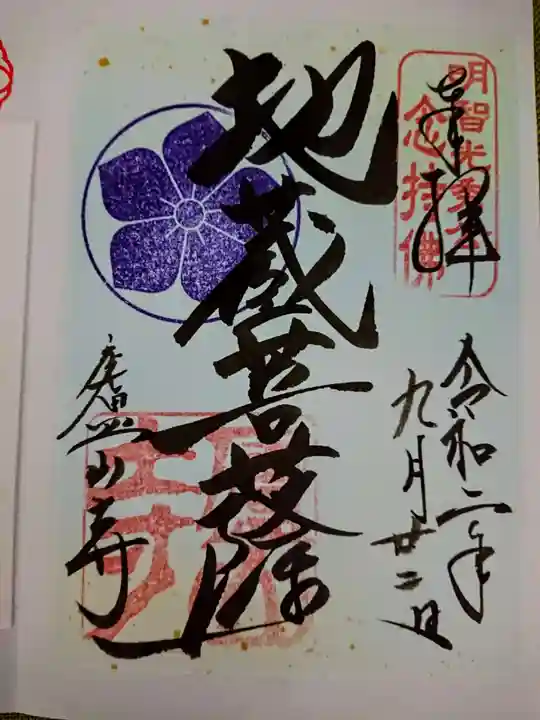 奉拝
明智光秀公
念持佛
令和二年
九月廿二日
地蔵菩薩
廬山寺